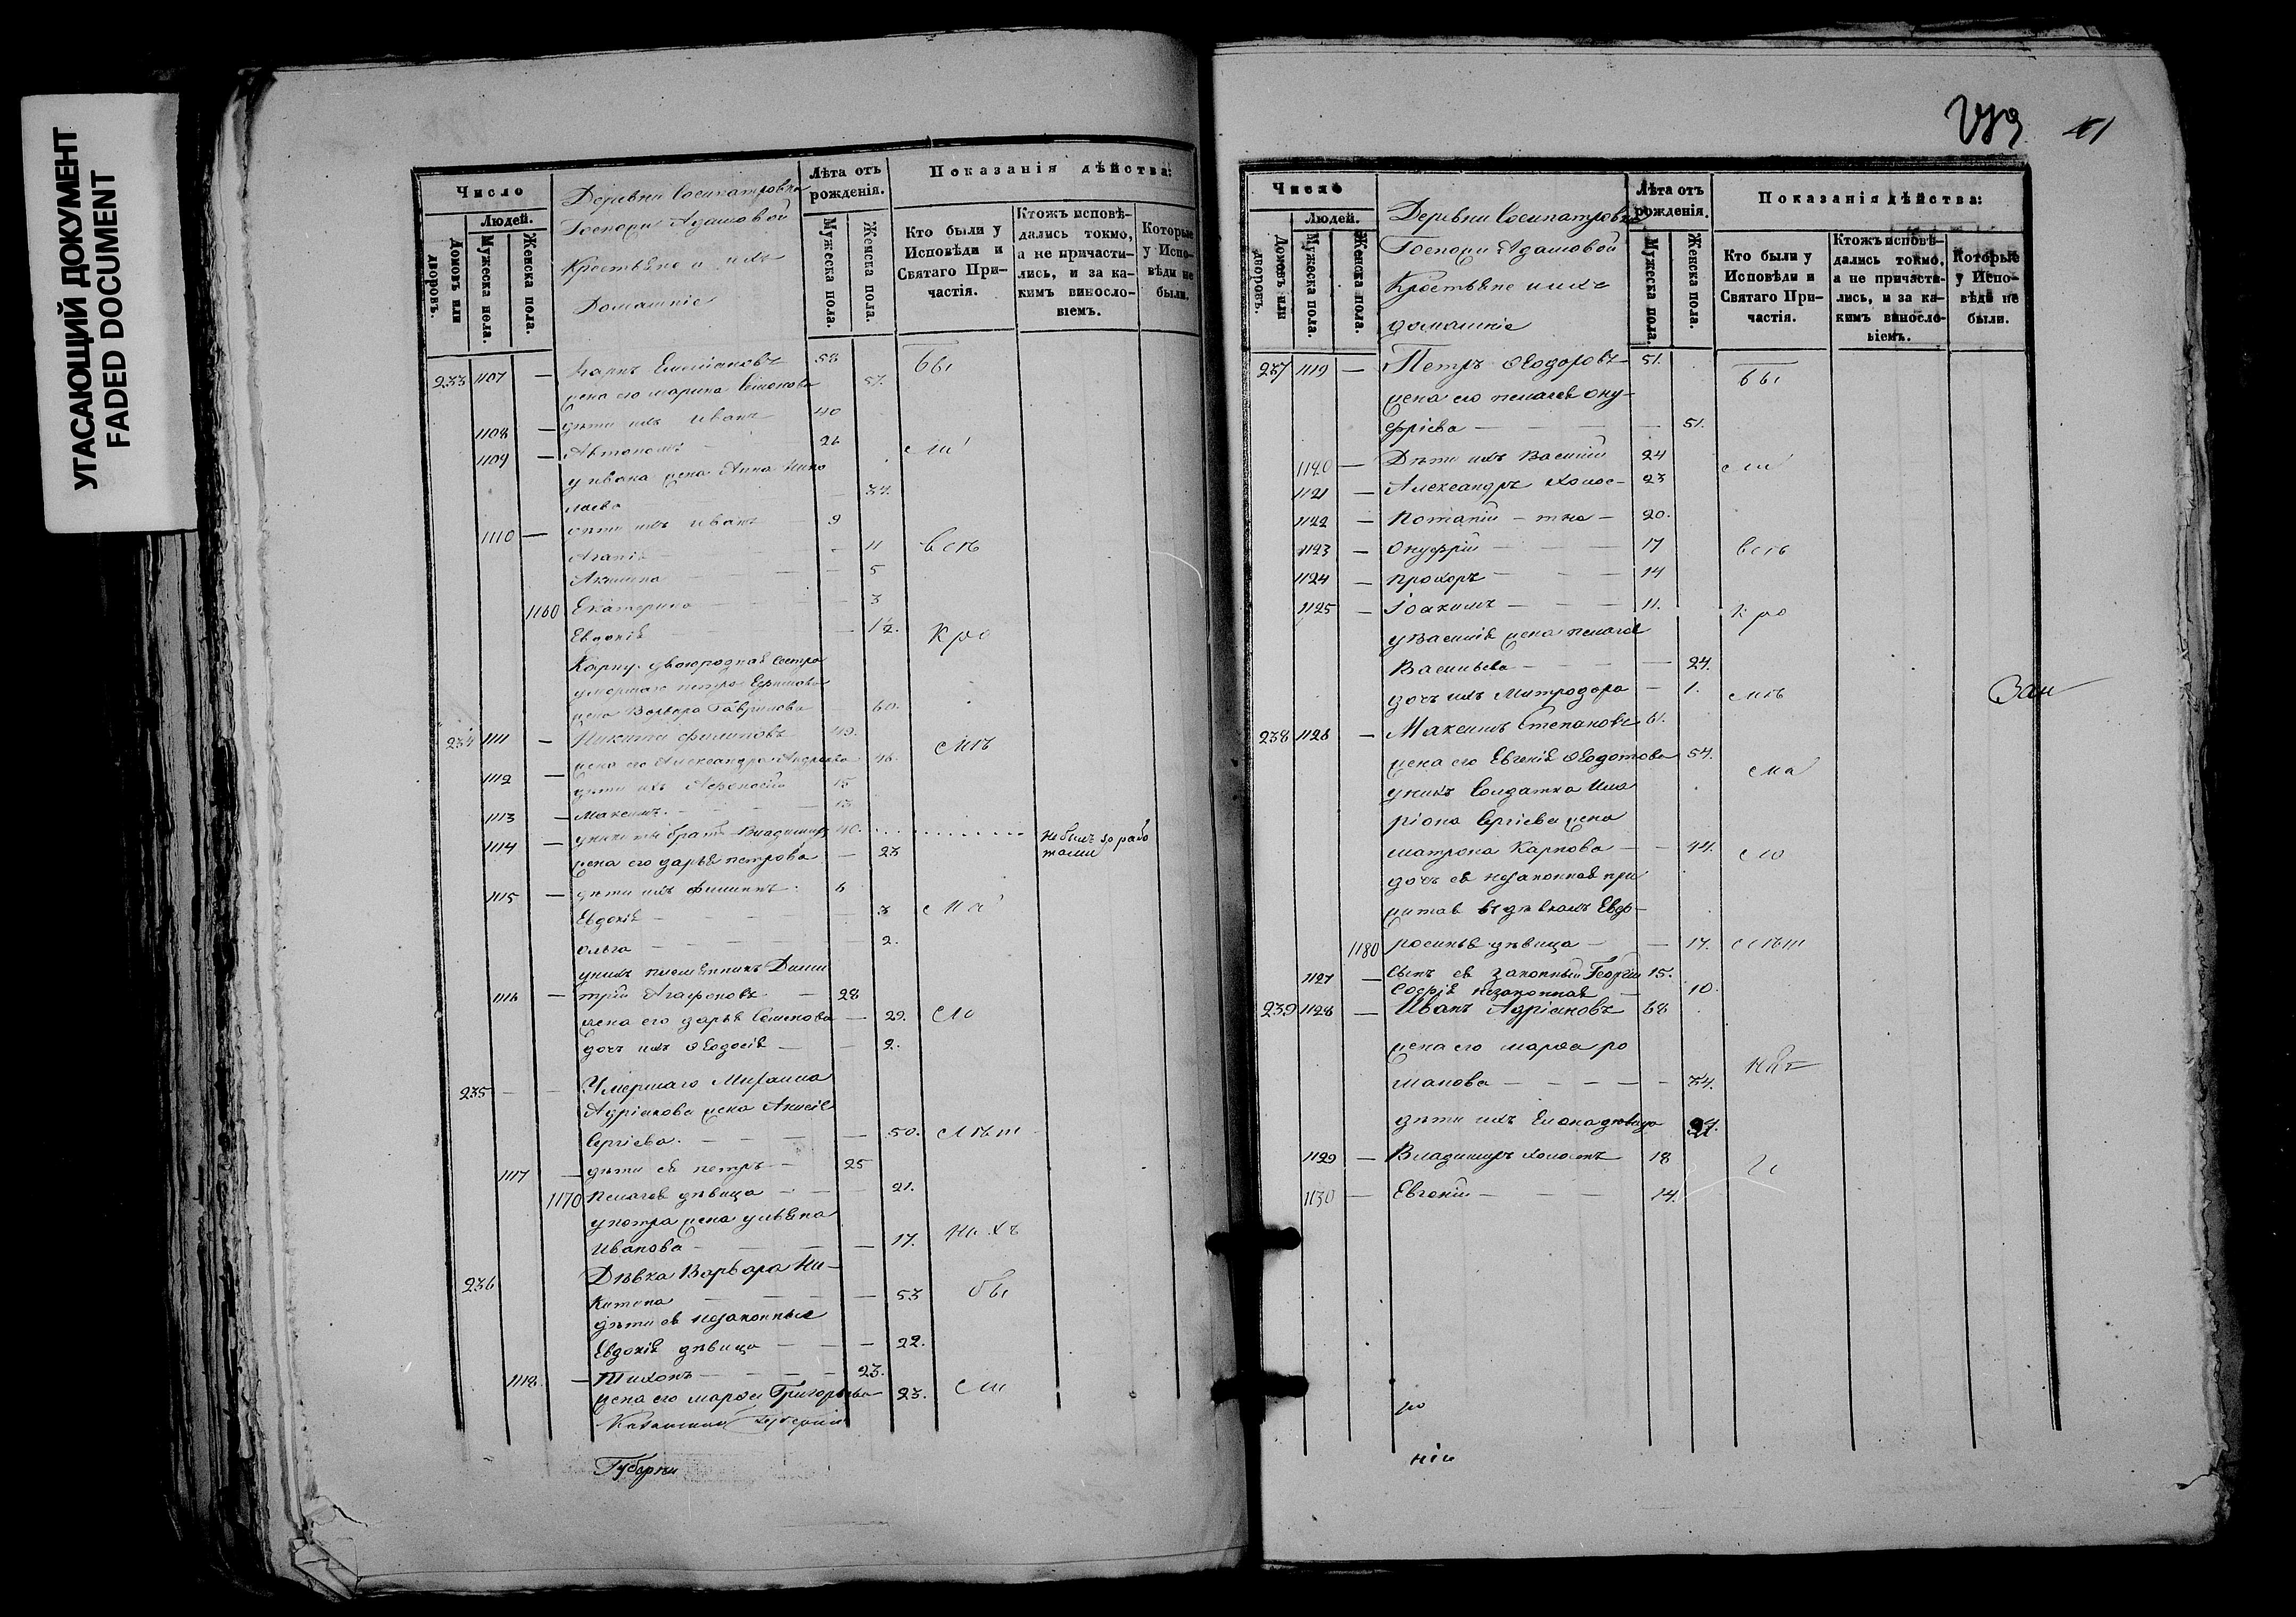 УГАСАЮЩИЙ ДОКУМЕНТ
FADED DOCUMENT
Число
Людей.
Домовъ или дворовъ.
Мужеска пола.
Женска пола.
Деревни Сосипатровка
Госпожи Адамовой
Крестьяне и ихъ
Домашніе
Лѣта отъ рожденія.
Мужеска пола.
Женска пола.
Показанія дѣйства:
Кто были у Исповѣди и Святаго При-
частія.
Ктожъ исповѣ-
дались токмо,
а не причасти-
лись, и за ка-
кимъ виносло-
віемъ.
Которые
у Испо-
вѣди не
были.
233 1107 — Карпъ Емельяновъ 58 бы
жена его марина Семенова 57.
1108 — дѣти ихъ Иванъ 40
1109 — Автономъ 26 ли
у ивана жена Анна Нико
лаева 34.
1110 — дѣти ихъ иванъ 9
Агапія 11 всѣ
Акилина 5
1160 Екатерина 3
Евдокія 1½. Кро
Карпу двоюродная сестра
умершаго петра Ефимова
жена Варвара Гаврилова 60.
234 1111 — Никита филиповъ 49. мѣ
жена его Александра Андреева 46.
1112 — дѣти ихъ Афанасій 15
1113 — Максимъ 13
1114 — у никиты братъ Владимиръ 40. не былъ за рабо
жена его дарья петрова — 23 тами
1115 — дѣти ихъ Филиппъ 6
Евдокія 3 ма
ольга 2.
у нихъ племянникъ Дими
1116 — трій Агафоновъ — 28
жена его дарья Семенова — 29. ло
дочь ихъ Ѳеодосія — 2.
235 — — Умершаго Михаила
Адріанова жена Анисія
Сергіева — 50. лѣт
1117 — дѣти ея петръ — 25
1170 пелагея дѣвица — 21.
у петра жена ульяна
Иванова — 17. нихъ
236 Дѣвка Варвара Ни-
китина — 53 бы
дѣти ея незаконные
Евдокія дѣвица — 22.
1118. — Тихонъ — 23.
жена его марѳа Григорьева 23. ли
Губерни
41
Число
Людей.
Домовъ или дворовъ.
Мужеска пола.
Женска пола.
Деревни Сосипатровка
Госпожи Адамовой
Крестьяне и ихъ
домашніе
Лѣта отъ рожденія.
Мужеска пола.
Женска пола.
Показанія дѣйства:
Кто были у Исповѣди и Святаго При-
частія.
Ктожъ исповѣ-
дались токмо,
а не причасти-
лись, и за ка-
кимъ виносло-
віемъ.
Которые
у Испо-
вѣди не
были.
237 1119 — Петръ Ѳеодоровъ 51. бы
жена его пелагея ону-
фріева — 51.
1120 — Дѣти ихъ Василій 24 ли
1121 — Александръ холос- 23
1122 — Потапій — тые — 20.
1123 — Онуфрій — 17 всѣ
1124 — прохоръ — 14
1125 — Іоакимъ — 11. кро
у Василія жена пелагея
Васильева — 24.
дочь ихъ Митродора — 1. мѣ
Зан
238 1126 — Максимъ Степановъ 61.
жена его Евгенія Ѳедотова 54. ма
у нихъ Солдатка Ила
ріона Сергіева жена
матрона Карпова — 44. ло
дочь ея незаконная при
житая въ дѣвкахъ Евф-
1180 росинья дѣвица — 17. лѣт
1127 — сынъ ея законный Георгій 15.
Софія незаконная — 10.
239 1128 — Иванъ Адріановъ 68
жена его марѳа ро
манова — 54.
дѣти ихъ Елена дѣвица
1129 — Владимиръ холостъ 18
1130 — Евгеній — 14.
ніи